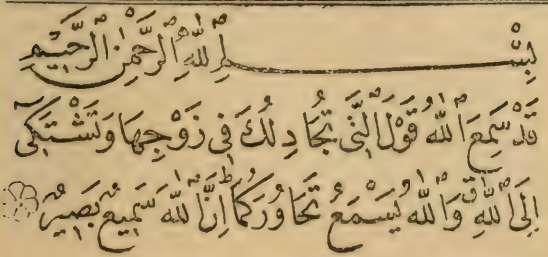 بِسْمِ اللّٰهِ الرَّحْمٰنِ الرَّحِيْمِ
قَدْ سَمِعَ اللّٰهُ قَوْلَ الَّتِيْ تُجَادِلُكَ فِيْ زَوْجِهَا وَتَشْتَكِيْٓ
اِلَى اللّٰهِ ۗ وَاللّٰهُ يَسْمَعُ تَحَاوُرَكُمَا ۗ اِنَّ اللّٰهَ سَمِيْعٌ بَصِيْرٌ